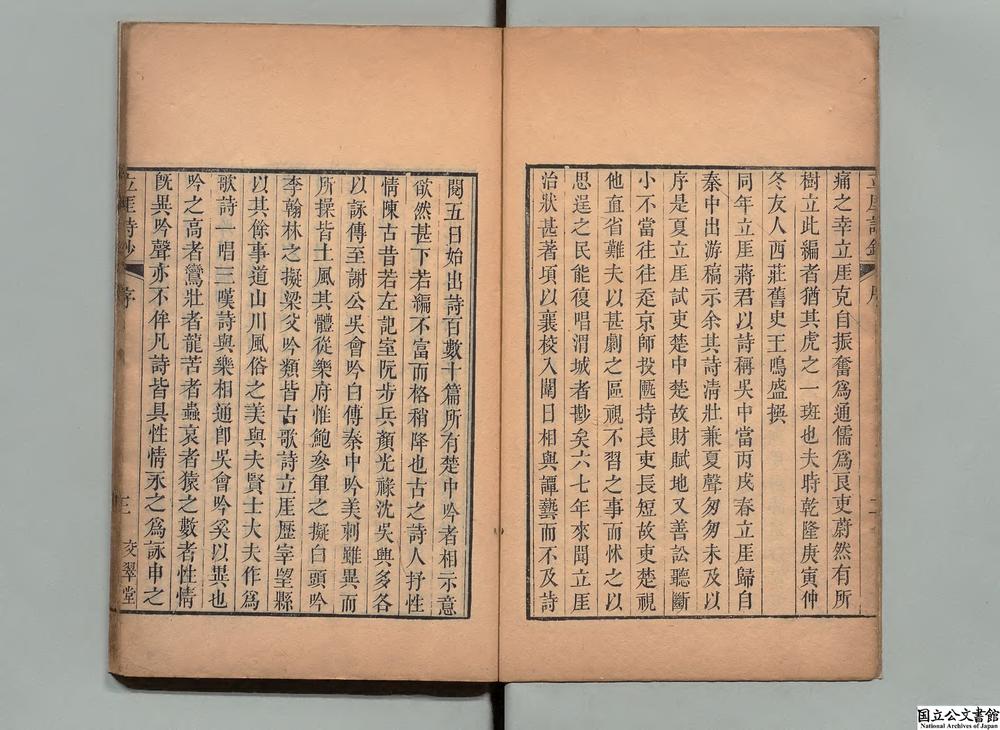 痛之幸立厓克自振奮爲通儒爲良吏蔚然有所
樹立此編者猶其虎之一斑也夫時乾隆庚寅仲
冬友人西莊舊史王鳴盛撰
同年立厓蔣君以詩稱吳中當丙戌春立厓歸自
秦中出游稿示余其詩清壯兼夏聲匆匆未及以
序是夏立厓試吏楚中楚故財賦地又善訟聽斷
小不當往往走京師投匭持長吏長短故吏楚視
他直省難夫以甚劇之區視不習之事而怵之以
思逞之民能復唱渭城者尠矣六七年來聞立厓
治狀甚著頃以襄校入闈日相與譚藝而不及詩
閱五日始出詩百數十篇所有楚中吟者相示意
欿然甚下若編不富而格稍降也古之詩人抒性
情陳古昔若左記室阮步兵顏光祿沈吳興多各
以詠傳至謝公吳會吟白傅秦中吟美刺雖異而
所操皆土風其體從樂府惟鮑參軍之擬白頭吟
李翰林之擬梁父吟類皆古歌詩立厓歷宰望縣
以其餘事道山川風俗之美與夫賢士大夫作爲
歌詩一唱三嘆詩與樂相通卽吳會吟奚以異也
吟之高者鸞壯者龍苦者蟲哀者猿之數者性情
旣異吟聲亦不侔凡詩皆具性情永之爲詠申之
立厓詩鈔
序
三
交翠堂
国立公文書館
National Archives of Japan